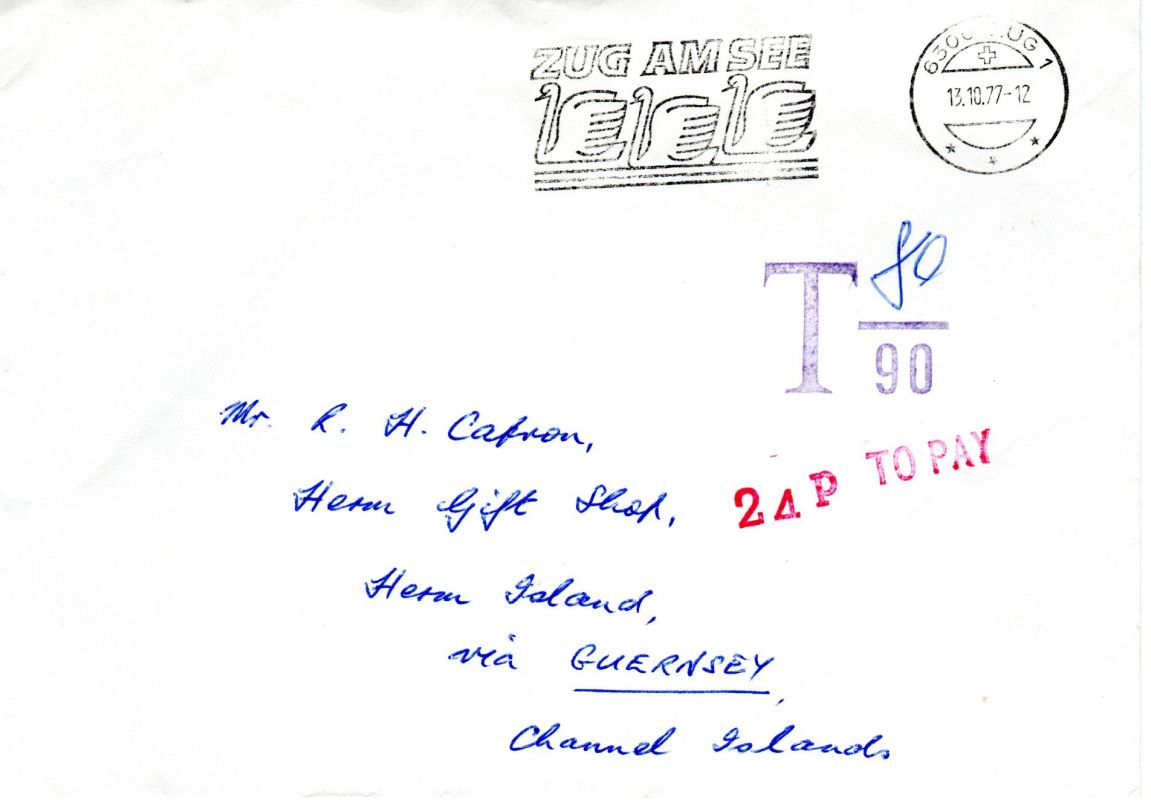 ZUG AM SEE
6300 ZUG 1
13.10.77-12
80
T
90
Mr. R. H. Catron,
24P TO PAY
Herm Gift Shop,
Herm Island,
via GUERNSEY,
Channel Islands